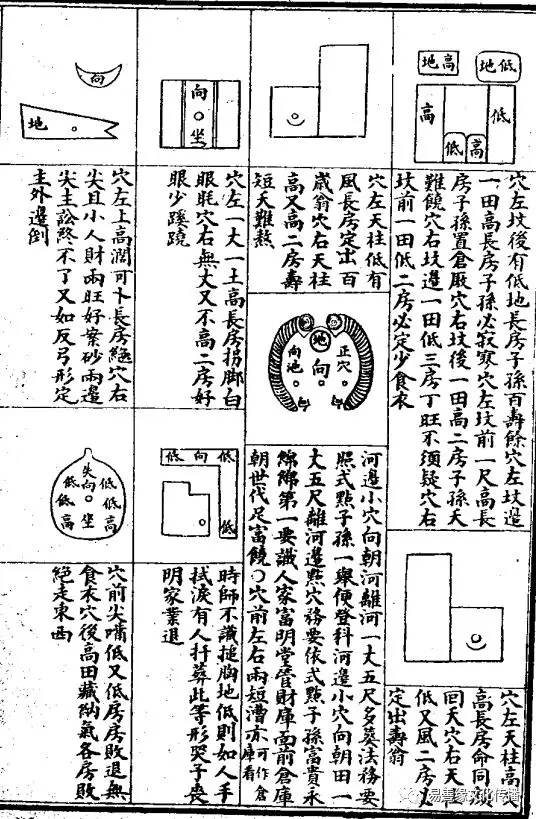 地高
地低
高
低
低
高
穴左坟後有低地長房子孫百壽餘穴左坟邉
一田高長房子孫必寂寞穴左坟前一尺高長
房子孫置倉厫穴右坟後一田高二房子孫夭
難饒穴右坟邉一田低三房丁旺不須疑穴右
坟前一田低二房必定少食衣
穴左天柱高
高長房命同顏
回夭穴右天
低又風二房
定出壽翁
穴左天柱低有
風長房定出百
歲翁穴右天柱
高又高二房壽
短夭難熬
地
正穴
向
向池
河邉小穴向朝河離河一大五尺多葬法務要
照式點子孫一舉便登科河邉小穴向朝田一
大五尺離河邉點穴務要依式點子孫富貴永
綿綿第一要識人家富明堂管財庫面前倉庫
朝世代足富饒〇穴前左右兩短漕亦可作倉庫看
向
坐
穴左一大一土高長房拐脚白
眼眊穴右無丈又不高二房好
眼少蹊蹺
低向低
低
時師不識搥胸地低則如人手
拭淚有人扦葬此等形哭子喪
明家業退
向
地
穴左上高濶可卜長房絕穴右
尖且小人財兩旺好案砂兩邉
尖主訟終不了又如反弓形定
主外邉倒
尖向
低
低
低
低
高
坐
高
穴前尖嘴低又低房房敗退無
食衣穴後高田藏納氣各房敗
絕走東西
易慧缘文化传播